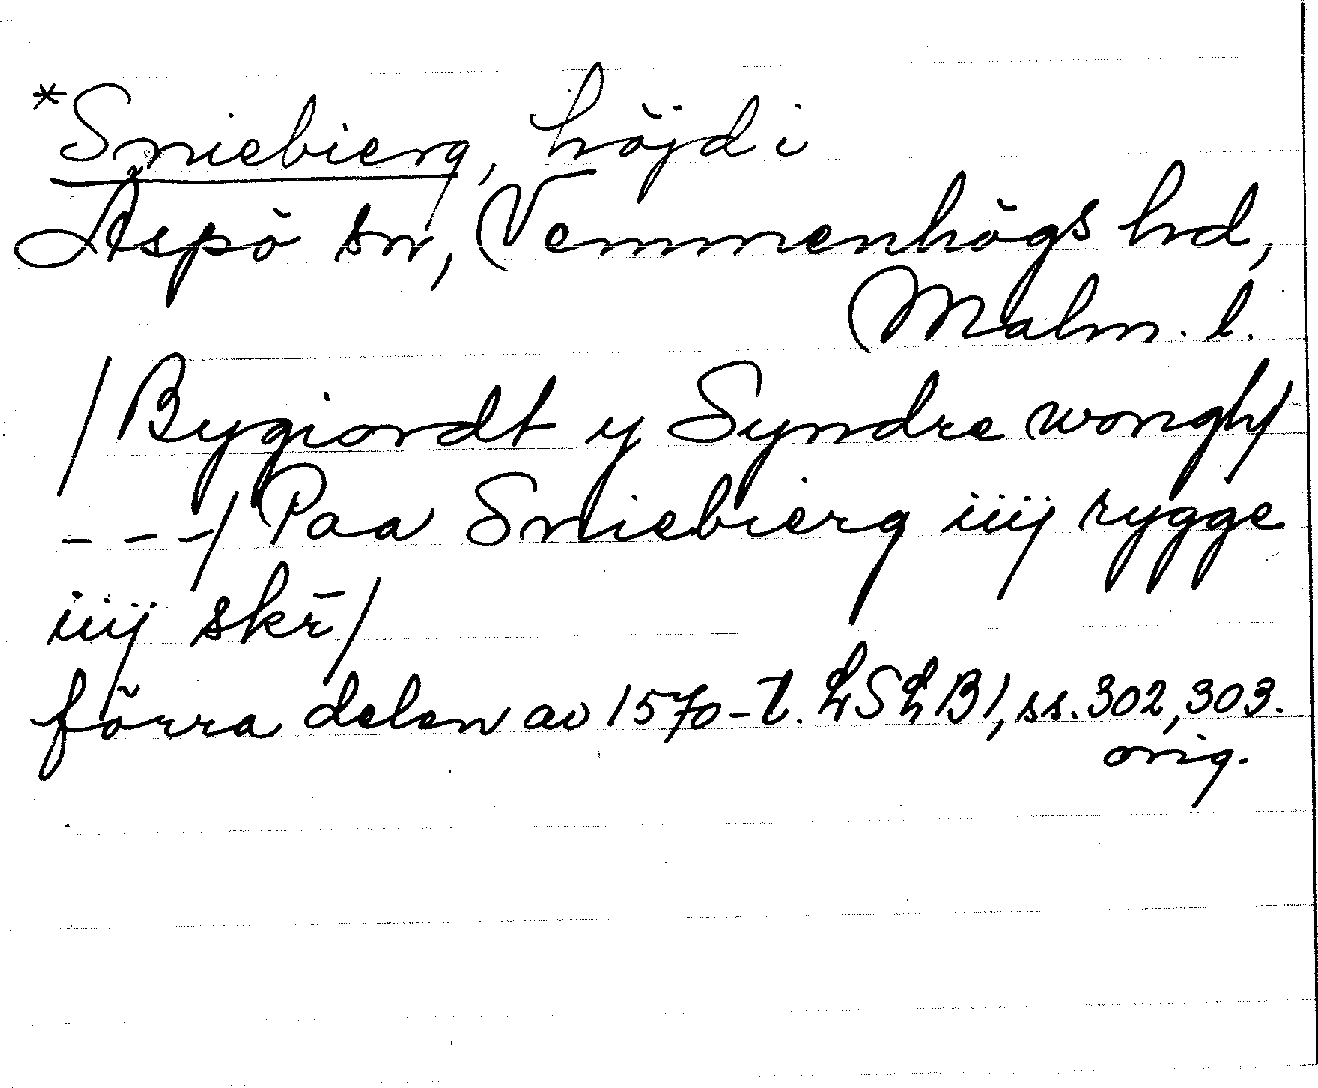 *Sniebierg, höjd i
Äspö sn, Vemmenhögs hd,
Malm. l.
/Bygiordt y Syndre wongh/
---/Paa Sniebierg iiij rygge
iiij skr̄/
förra delen av 1570-t. LSLB1, ss. 302, 303.
orig.